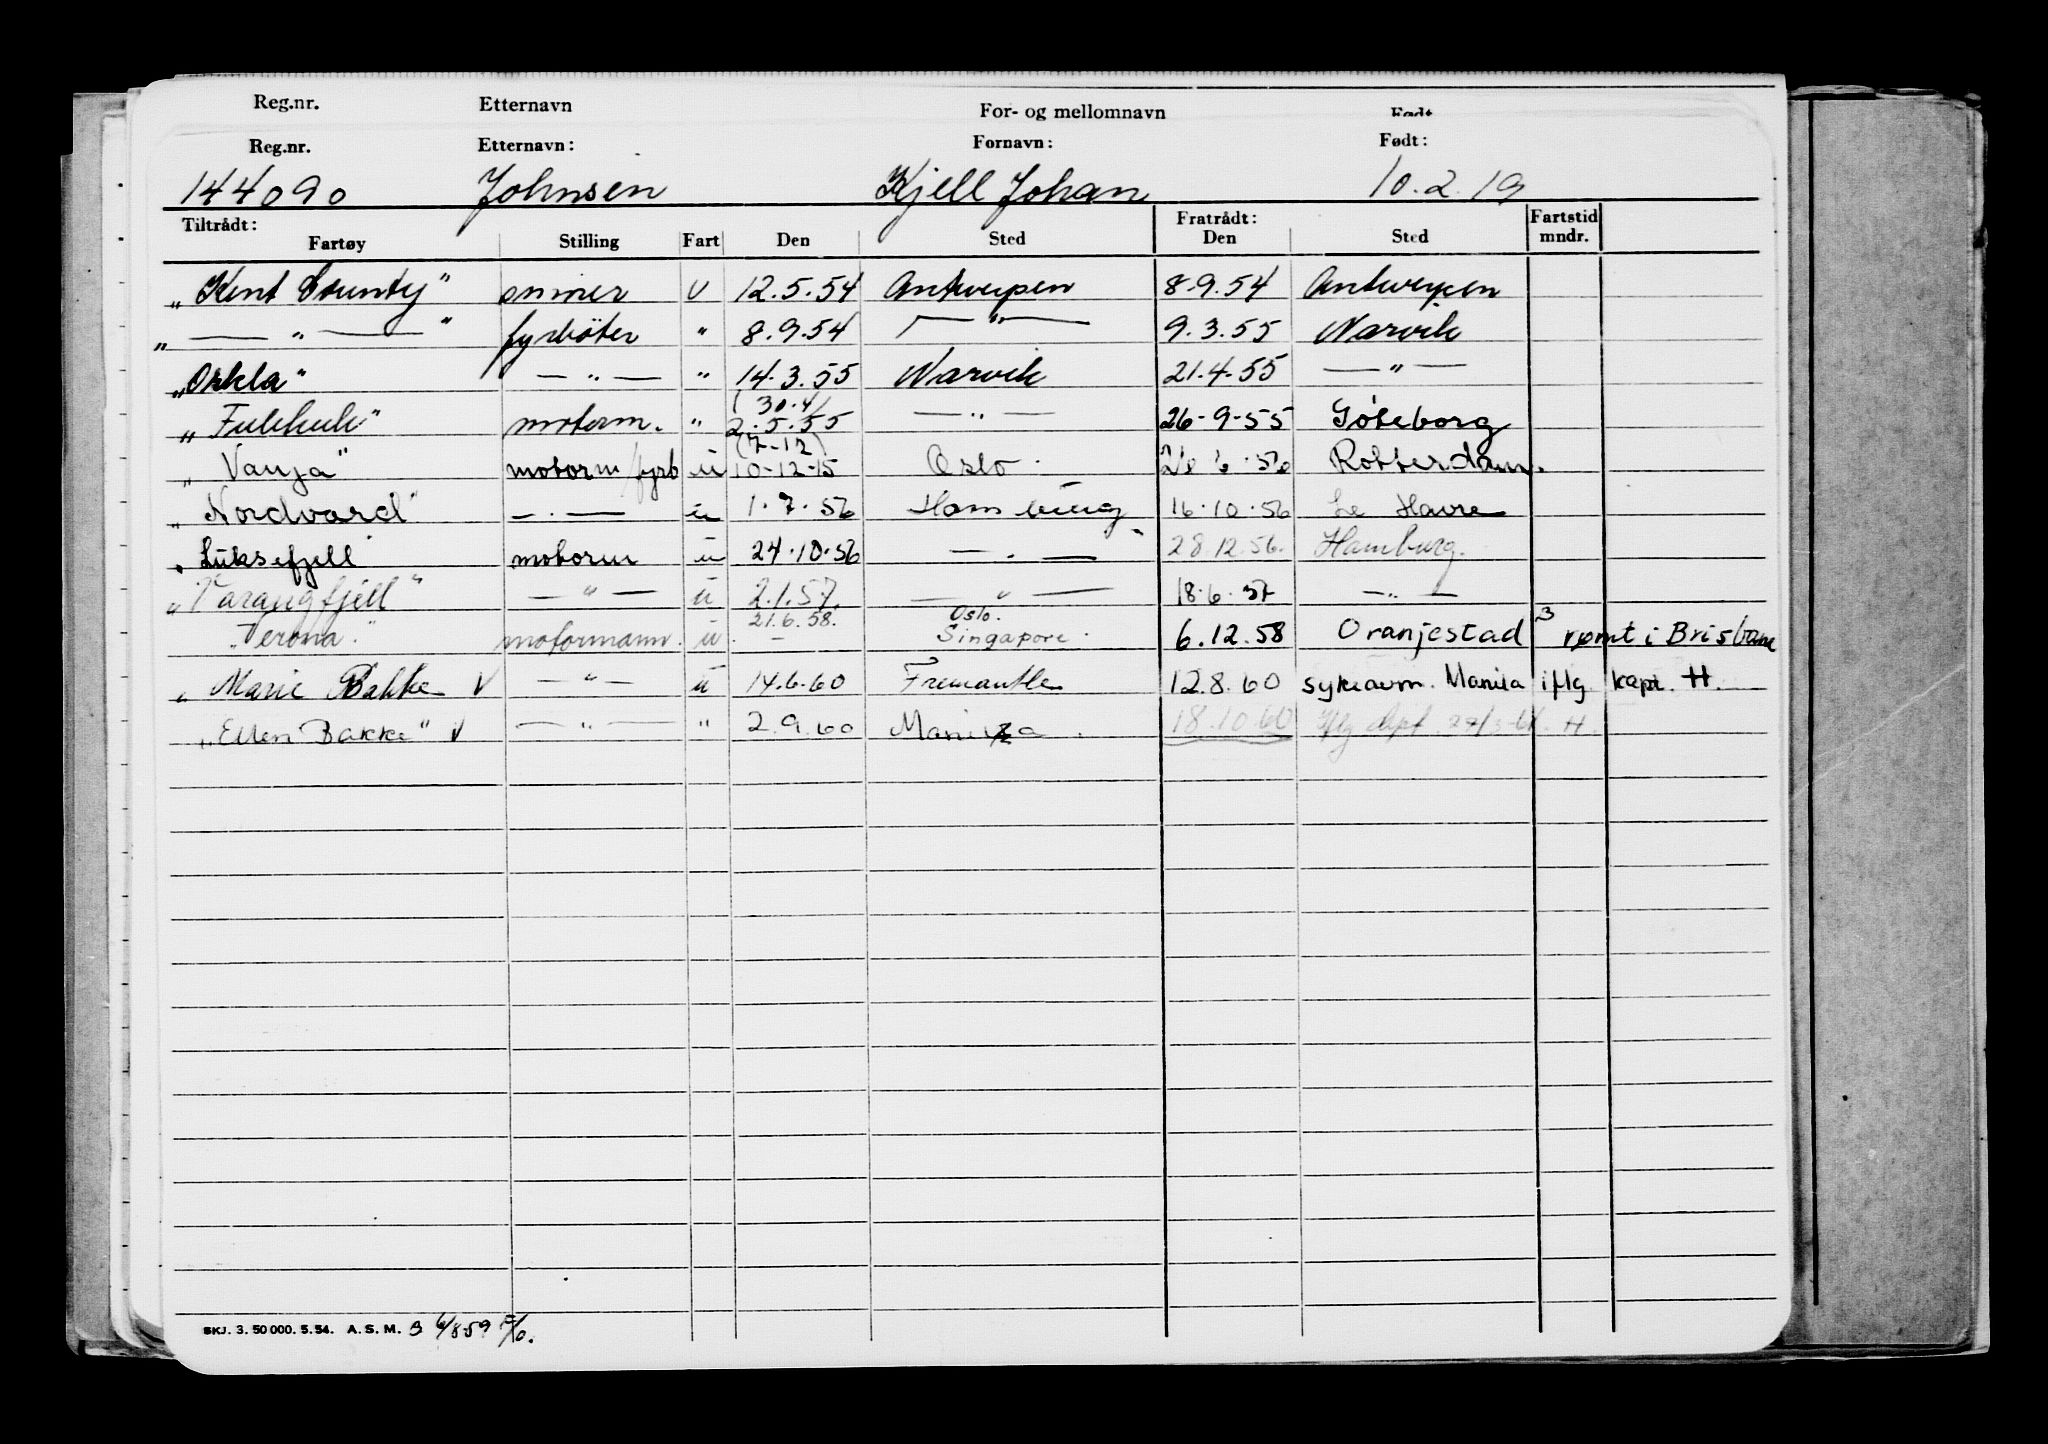 Reg.nr. Etternavn For- og mellomnavn Født
Reg.nr. Etternavn: Fornavn: Født:
144090 Johnsen Kjell Johan 10.2.19
Tiltrådt: Fratrådt: Fartstid
Fartøy Stilling Fart Den Sted Den Sted mndr.
"Kent County" smører U 12.5.54 Antwerpen 8.9.54 Antwerpen
" — " — " fyrbøter " 8.9.54 — " — 9.3.55 Narvik
"Orkla" — " — " 14.3.55 Narvik 21.4.55 — " —
(30.4)
" " motorm. " 2.5.55 — " — 26-9-55 Göteborg
(7-12)
"Vanja" motorm/fyrb u 10-12-15 Oslo. 26 6.56 Rotterdam.
"Nordvard" — . — u 1.7.56 Hamburg 16.10.56 Le Havre
"Luksefjell" motorm u 24.10.56 — . — 28.12.56. Hamburg.
"Varangfjell" — " — u 2.1.57. — " — 18.6.57 — . —
21.6.58. Oslo.
"Verona." motormann. u. — Singapore. 6.12.58 Oranjestad 3 rømt i Brisbane
"Marie Bakke V — " — u 14.6.60 Fremantle 12.8.60 sykeavm. Manila iflg. kapt. H.
"Ellen Bakke" V — " — " 2.9.60 Manila. 18.10.60 Iflg dept 27/3-61. H.
SKJ. 3. 50 000. 5.54. A. S. M. B 6/8-59